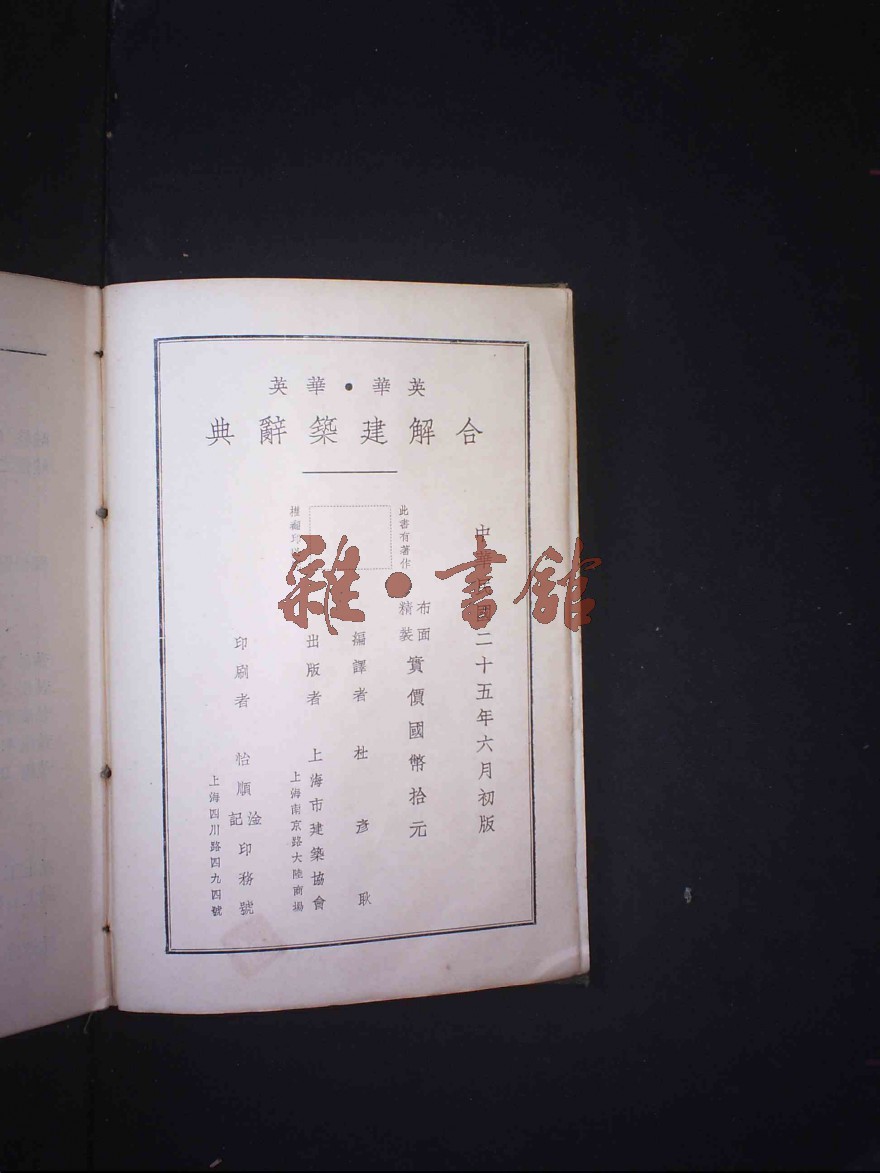 英華・華英
合解建築辭典
中華民國二十五年六月初版
布面
精裝
實價國幣拾元
此書有著作
權翻印
編譯者 杜彥耿
出版者 上海市建築協會
上海南京路大陸商場
印刷者 怡順 淦記 印務號
上海四川路四九四號
雜・書館